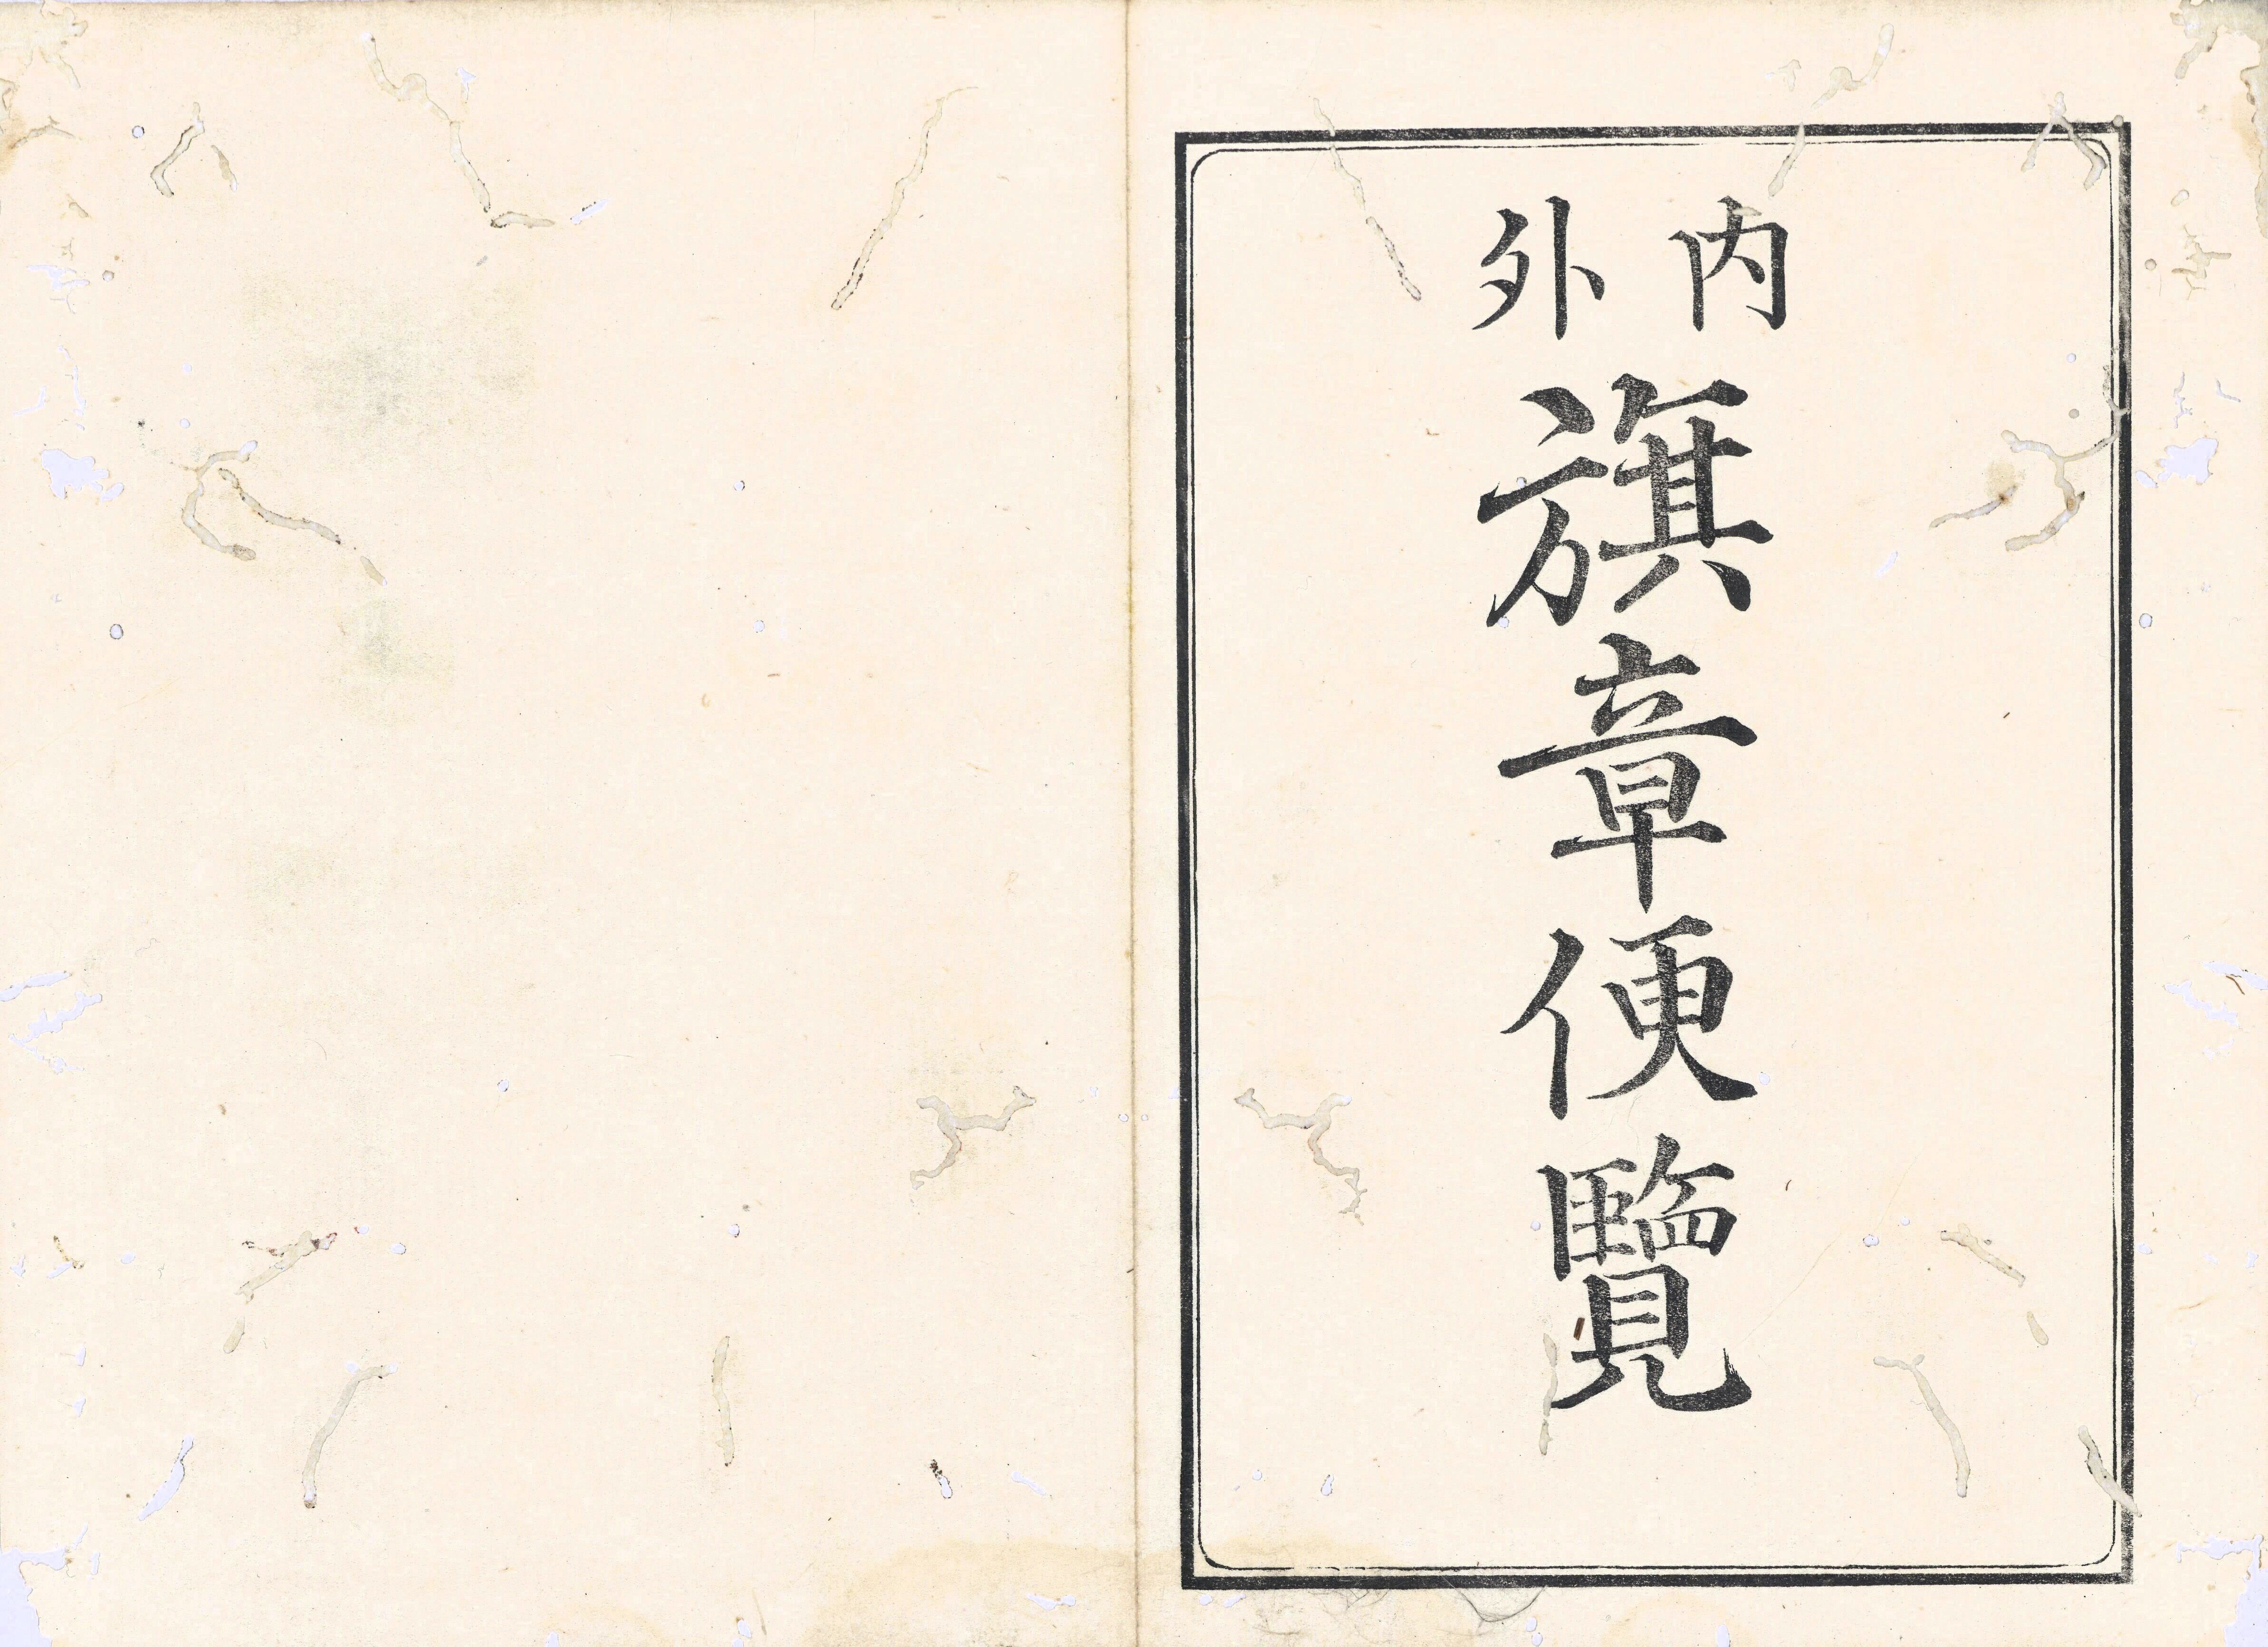 内外
旗章便覽